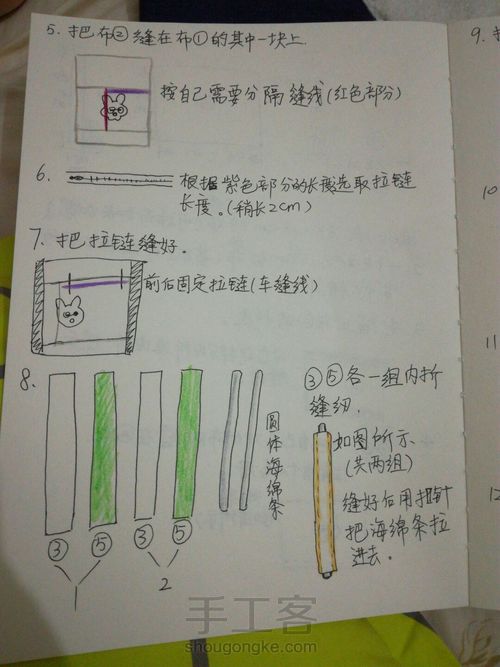 5. 把布②缝在布①的其中一块上.
按自己需要分隔缝线(红色部分)
6.
根据紫色部分的长度选取拉链
长度。(稍长2cm)
7. 把拉链缝好.
前后固定拉链(车缝线)
8.
③ ⑤ ③ ⑤
1 2
圆体海绵条
③⑤各一组内折
缝纫.
如图所示
(共两组)
缝好后用扭针
把海绵条拉
进去.
9.
10
11
12
手工客
shougongke.com